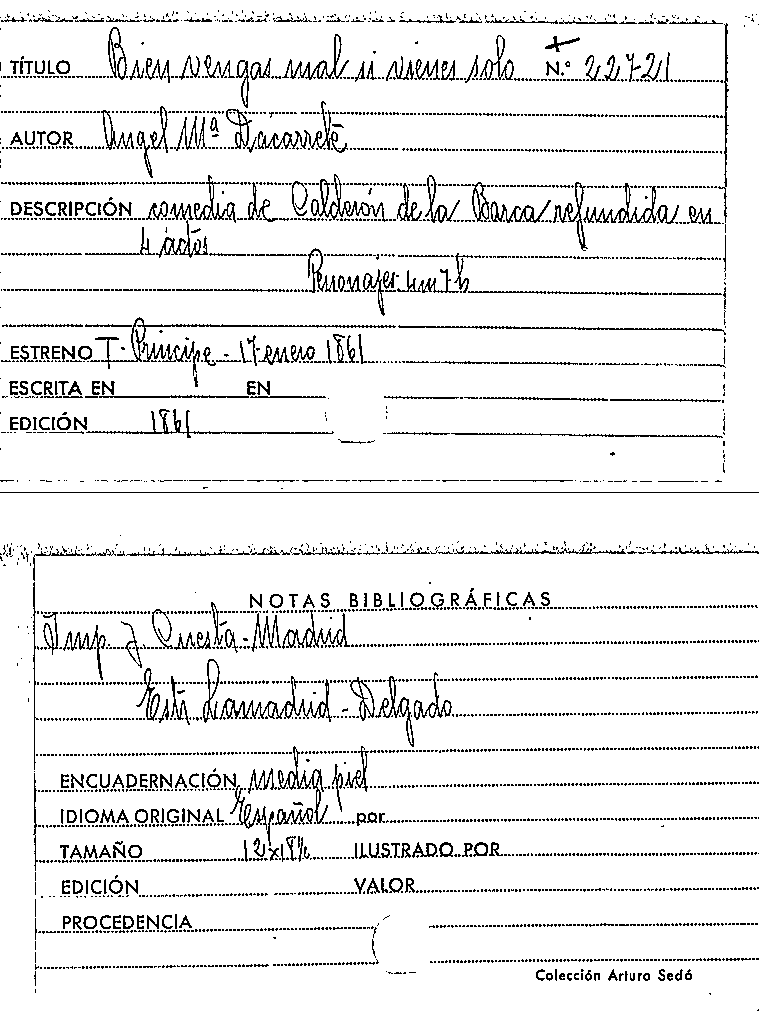 TÍTULO Bien vengas mal si vienes solo N.º 22721
AUTOR Angel Mª Dacarrete
DESCRIPCIÓN comedia de Calderón de la Barca refundida en
4 actos
Personajes 4m 7h
ESTRENO T. Principe - 17 enero 1861
ESCRITA EN EN
EDICIÓN 1861
NOTAS BIBLIOGRÁFICAS
Imp. J Cuesta - Madrid
Estr Lamadrid - Delgado
ENCUADERNACIÓN media piel
IDIOMA ORIGINAL Español por
TAMAÑO 12x18 ILUSTRADO POR
EDICIÓN VALOR
PROCEDENCIA
Colección Arturo Sedó